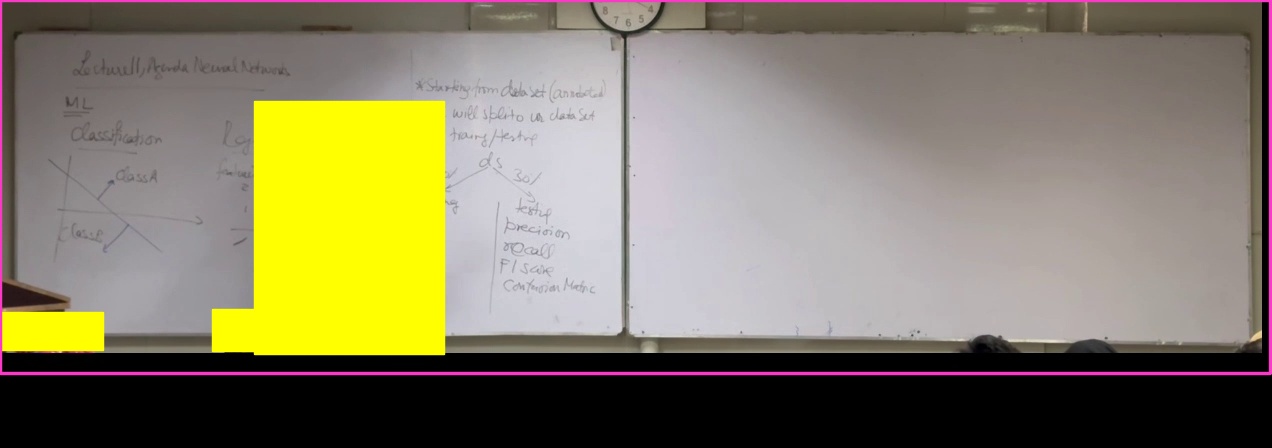 Lecture11, Agenda Neural Networks
ML
Classification
ClassA
ClassB
*Starting from dataset (annotated)
will split to dataset
training/testing
ds
30%
testing
precision
recall
F1 score
Confusion Matric
8 7 6 5 4